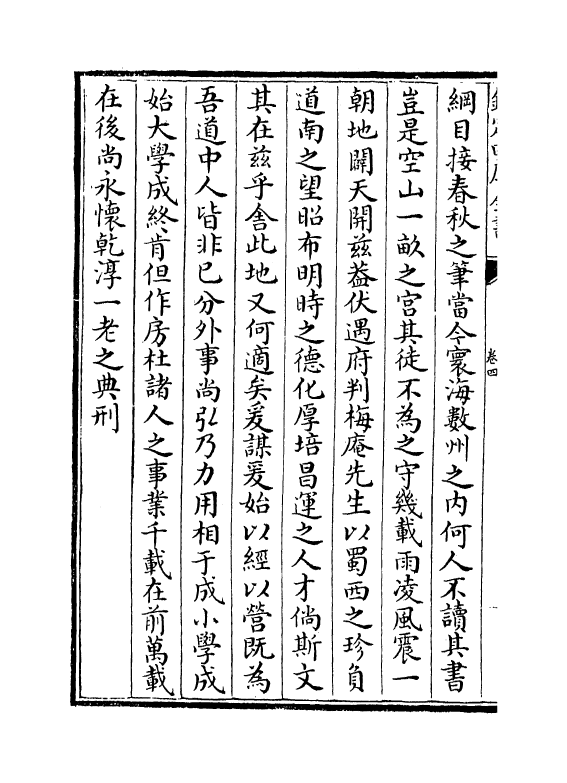 卷四
綱目接春秋之筆當今寰海數州之内何人不讀其書
豈是空山一畝之宫其徒不為之守幾載雨凌風震一
朝地闢天開兹葢伏遇府判梅庵先生以蜀西之珍負
道南之望昭布明時之德化厚培昌運之人才倘斯文
其在兹乎舍此地又何適矣爰謀爰始以經以營既為
吾道中人皆非已分外事尚弘乃力用相于成小學成
始大學成終肯但作房杜諸人之事業千載在前萬載
在後尚永懷乾淳一老之典刑